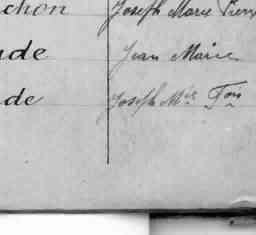 chon Joseph Marie Pierre
ude Jean Marie
de Joseph Mie Fois